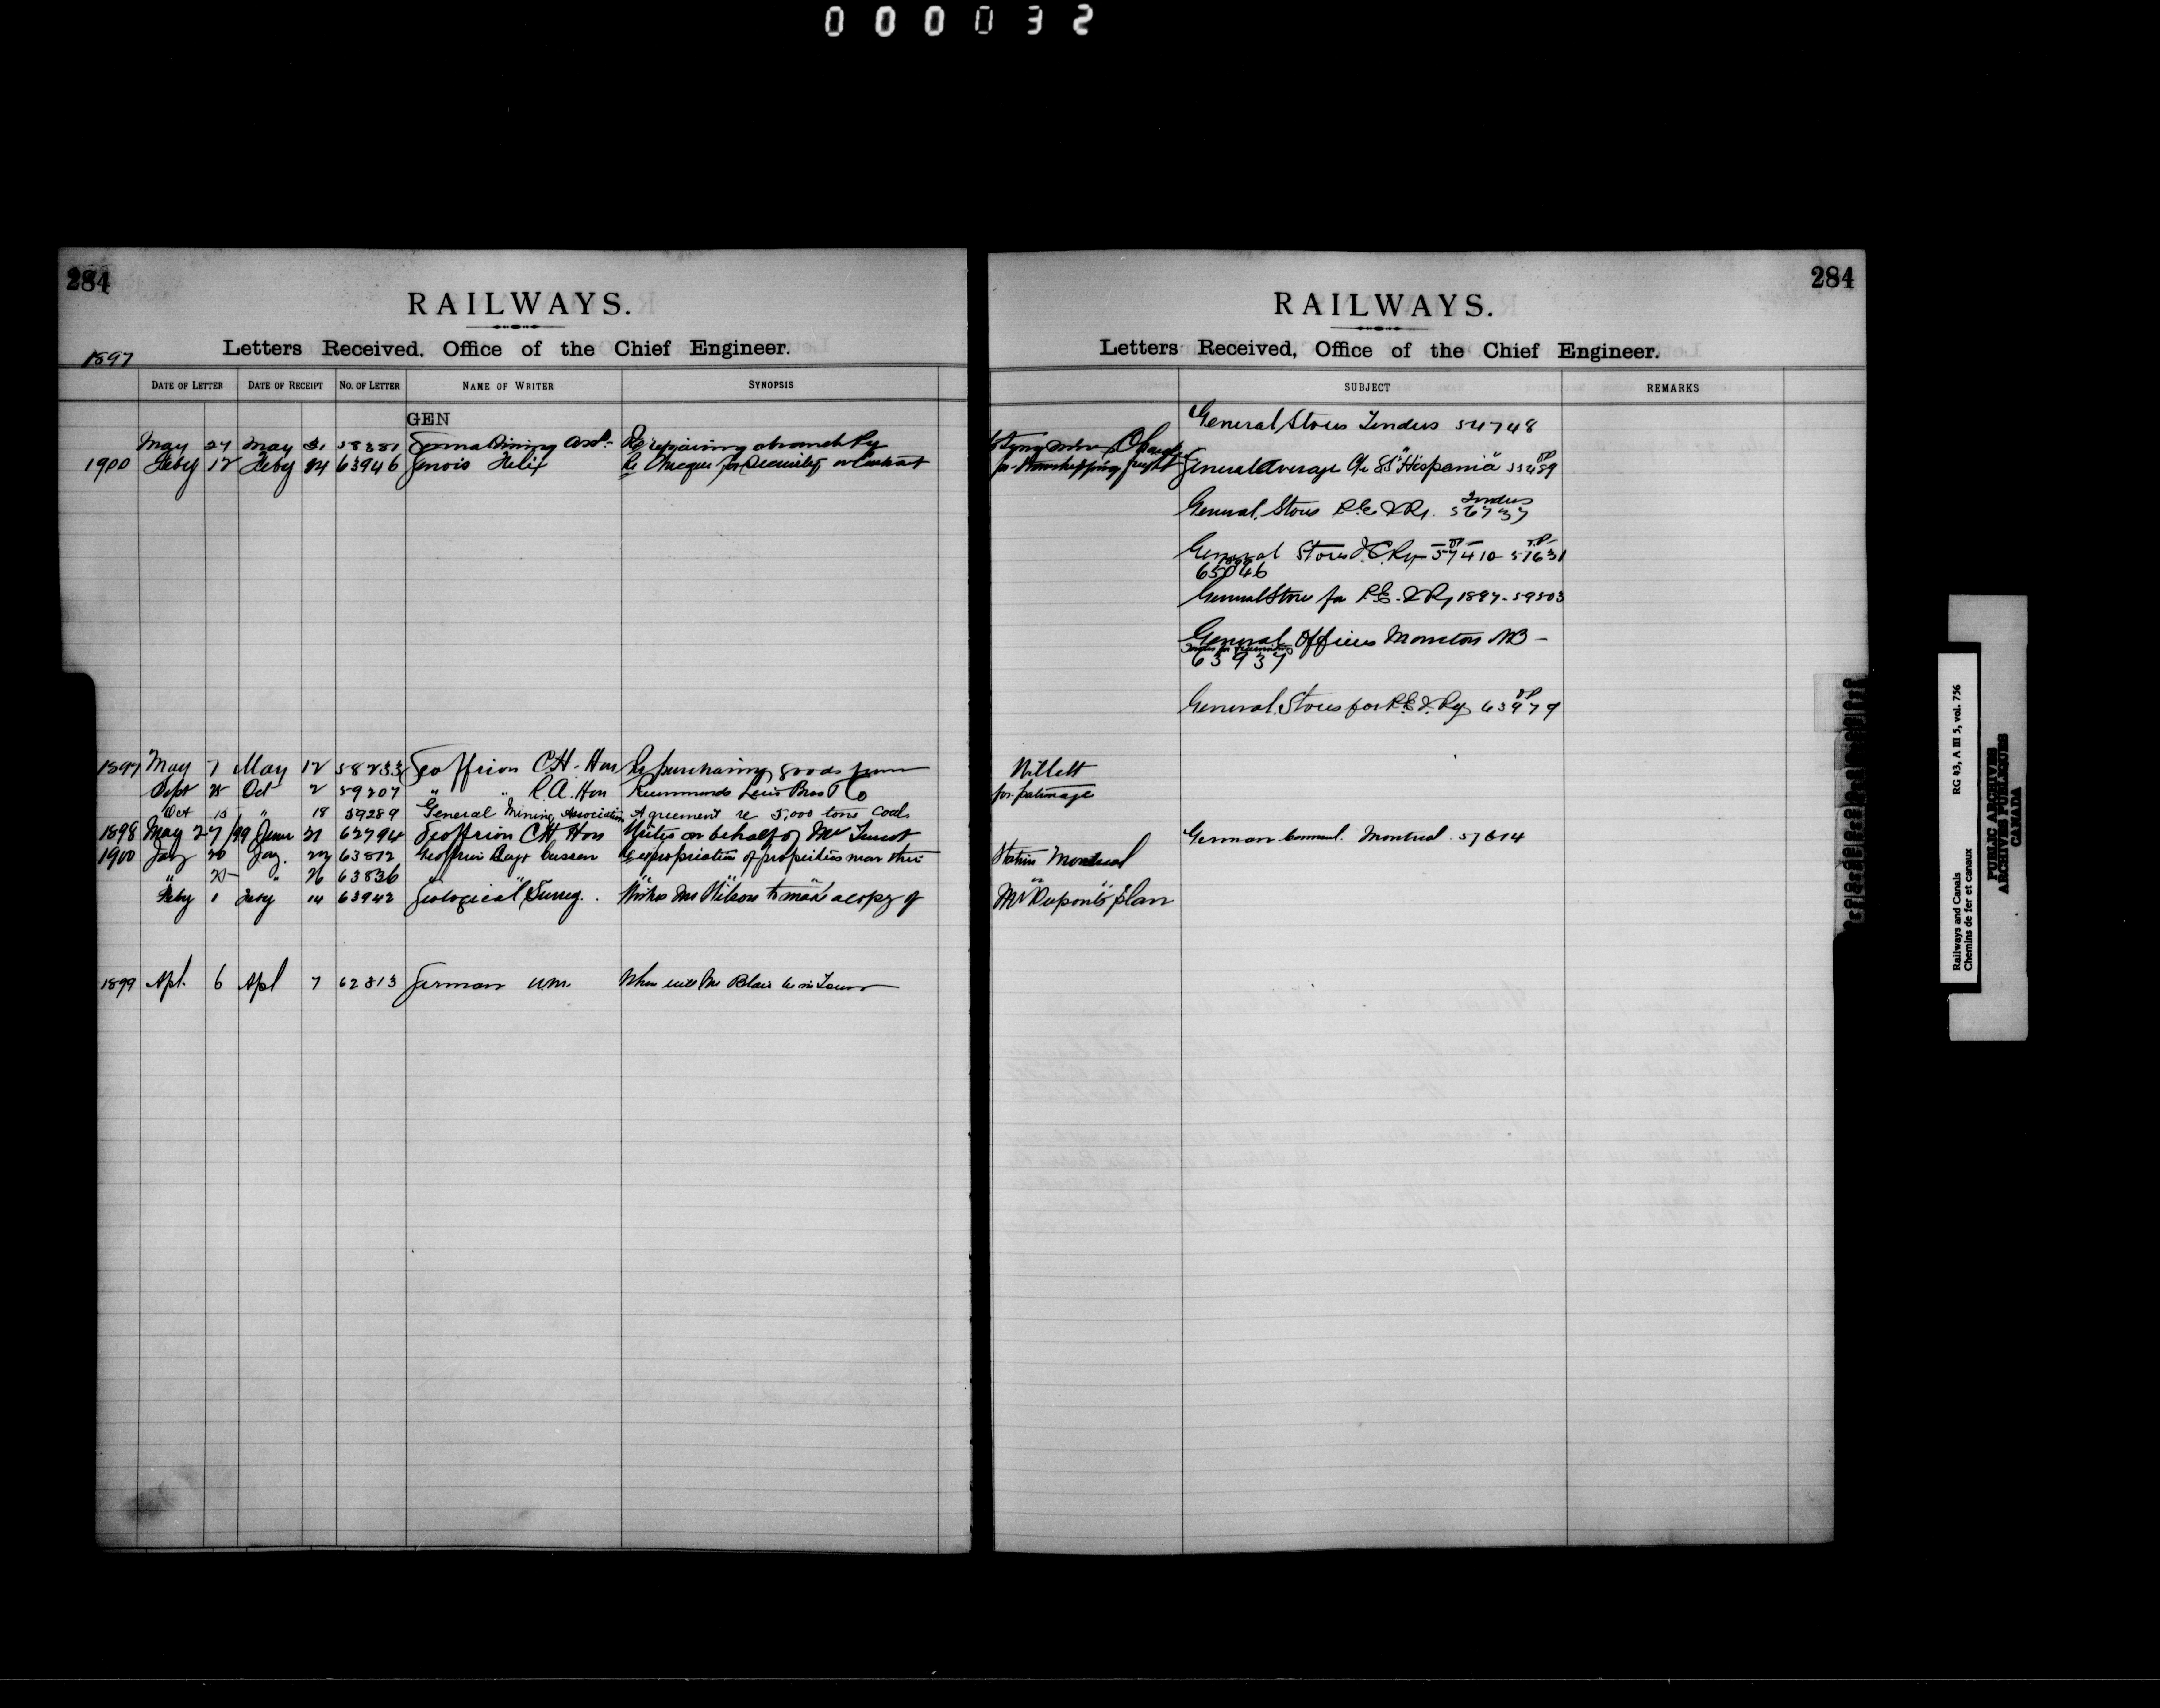 000032
284
RAILWAYS.
Letters Received. Office of the Chief Engineer.
1897
DATE OF LETTER DATE OF RECEIPT No. OF LETTER NAME OF WRITER SYNOPSIS
GEN
May 27 May 31 58381 Mining Assn Re repairing branch Ry
1900 Feby 12 Feby 14 63946 Genois Felix Re Cheque for Security on Contract
1897 May 7 May 12 58233 Geoffrion C.H. Hon Re purchasing goods from
Sept 25 Oct 2 59207 " " R.A. Hon Recommends Lewis Bros & Co
Oct 15 " 18 59289 General Mining Association Agreement re 5,000 tons Coal
1898 May 27 /99 June 21 62794 Geoffrion C.H. Hon Writes on behalf of Mr
1900 Jay 20 Jay. 22 63812 Geoffrion Expropriation of properties near their
" 25 " 26 63836 " " " " "
Feby 1 Feby 14 63942 Geological Survey. Wishes Mr Wilson to make a copy of
1899 Apl. 6 Apl 7 62313 German Wm. When will Mr Blair be in Town
284
RAILWAYS.
Letters Received, Office of the Chief Engineer.
SUBJECT REMARKS
General Stores Tenders 54748
for transhipping freight General Average a/c SS "Hispania" 55489
General Stores P.E.I. Ry. Tenders 56737
General Stores I.C. Ry 57410 - 57631
65046
General Stores for P.E.I. Ry 1897 - 59503
General Offices Moncton NB -
63937
General Stores for P.E.I. Ry 63979
Willett
for patronage
German Consul. Montreal. 57614
Station Montreal
" " "
Mr Dupont's plan
Railways and Canals RG 43, A III 5, vol. 756
Chemins de fer et canaux
PUBLIC ARCHIVES
ARCHIVES PUBLIQUES
CANADA